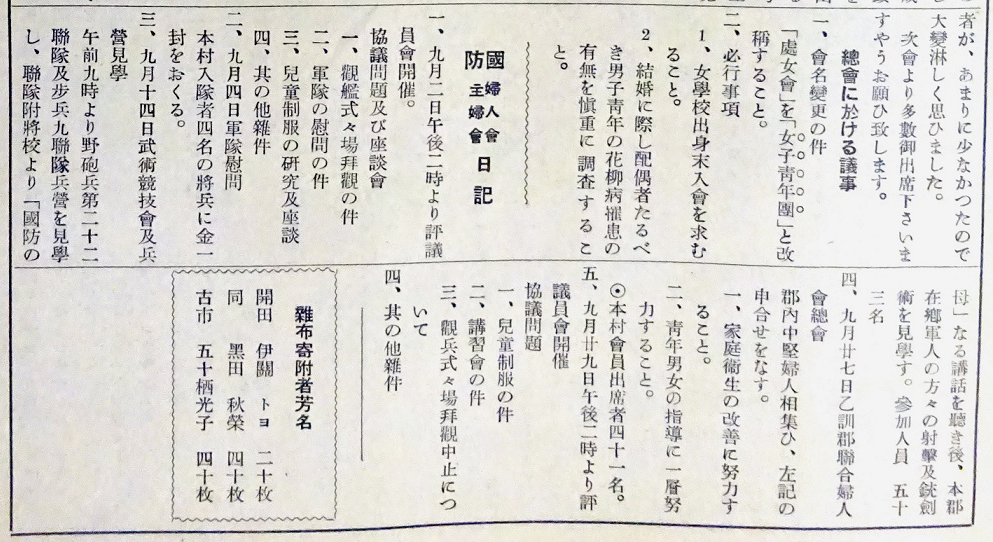 者が、あまりに少なかつたので
大變淋しく思ひました。
次會より多數御出席下さいま
すやうお願ひ致します。
總會に於ける議事
一、會名變更の件
「處女會」を「女子青年團」と改
稱すること。
二、必行事項
1、女學校出身未入會を求む
ること。
2、結婚に際し配偶者たるべ
き男子青年の花柳病罹患の
有無を愼重に調査するこ
と。
國防婦人會主婦會日記
一、九月二日午後二時より評議
員會開催。
協議問題及び座談會
一、觀艦式々場拜觀の件
二、軍隊の慰問の件
三、兒童制服の研究及座談
四、其の他雜件
二、九月四日軍隊慰問
本村入隊者四名の將兵に金一
封をおくる。
三、九月十四日武術競技會及兵
營見學
午前九時より野砲兵第二十二
聯隊及步兵九聯隊兵營を見學
し、聯隊附將校より「國防の
母」なる講話を聽き後、本郡
在鄕軍人の方々の射擊及銃劍
術を見學す。參加人員 五十
三名
四、九月廿七日乙訓郡聯合婦人
會總會
郡內中堅婦人相集ひ、左記の
申合せをなす。
一、家庭衞生の改善に努力す
ること。
二、靑年男女の指導に一層努
力すること。
◎本村會員出席者四十一名。
五、九月廿九日午後二時より評
議員會開催
協議問題
一、兒童制服の件
二、講習會の件
三、觀兵式々場拜觀中止につ
いて
四、其の他雜件
雜布寄附者芳名
開田 伊關 トヨ 二十枚
同 黑田 秋榮 四十枚
古市 五十栖光子 四十枚